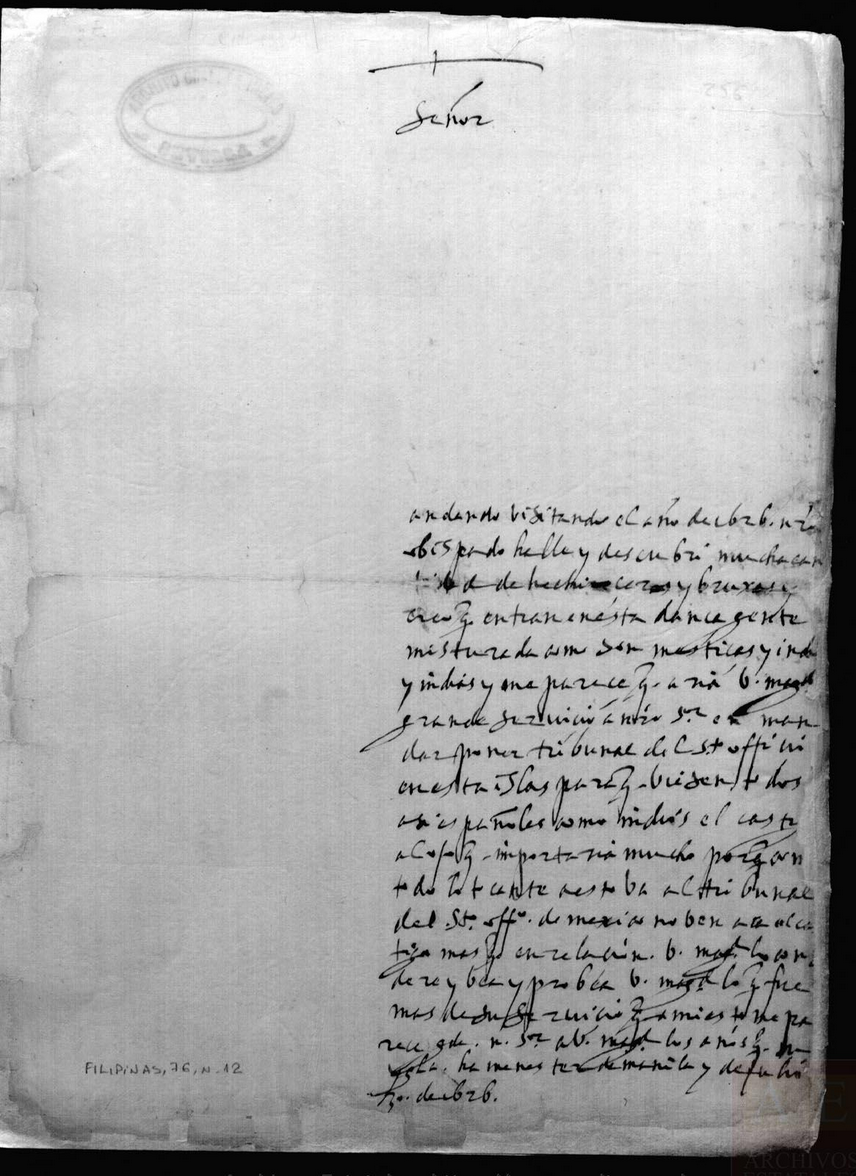 Señor
andando visitando el año de 1626. nro
obispado halle y descubri mucha can
tidad de hechiceros y bruxas y
creo q. entran en ésta dança gente
misturada como son mesticas y indi
y indias y me parece q. aria V. magd
grande servicio á nro Sr. en man
dar poner tribunal del Sto officio
en esta islas para q. viesen todos
asi españoles como indios el casti
q importaria mucho porq aun
todo lo tocante a esto va al tribunal
del Sto. offo. de mexico no ven aca el cas
tigo mas q en relaçion. V. magd. lo con
dere y vea y probea V. magd lo q fue
mas de su servicio q a mi esto me pa
rece gde. n. Sr. a V. magd los años q. su
ygla. ha menester de manila y de julio
30. de 1626.
FILIPINAS,76,N.12
ARCHIVOS